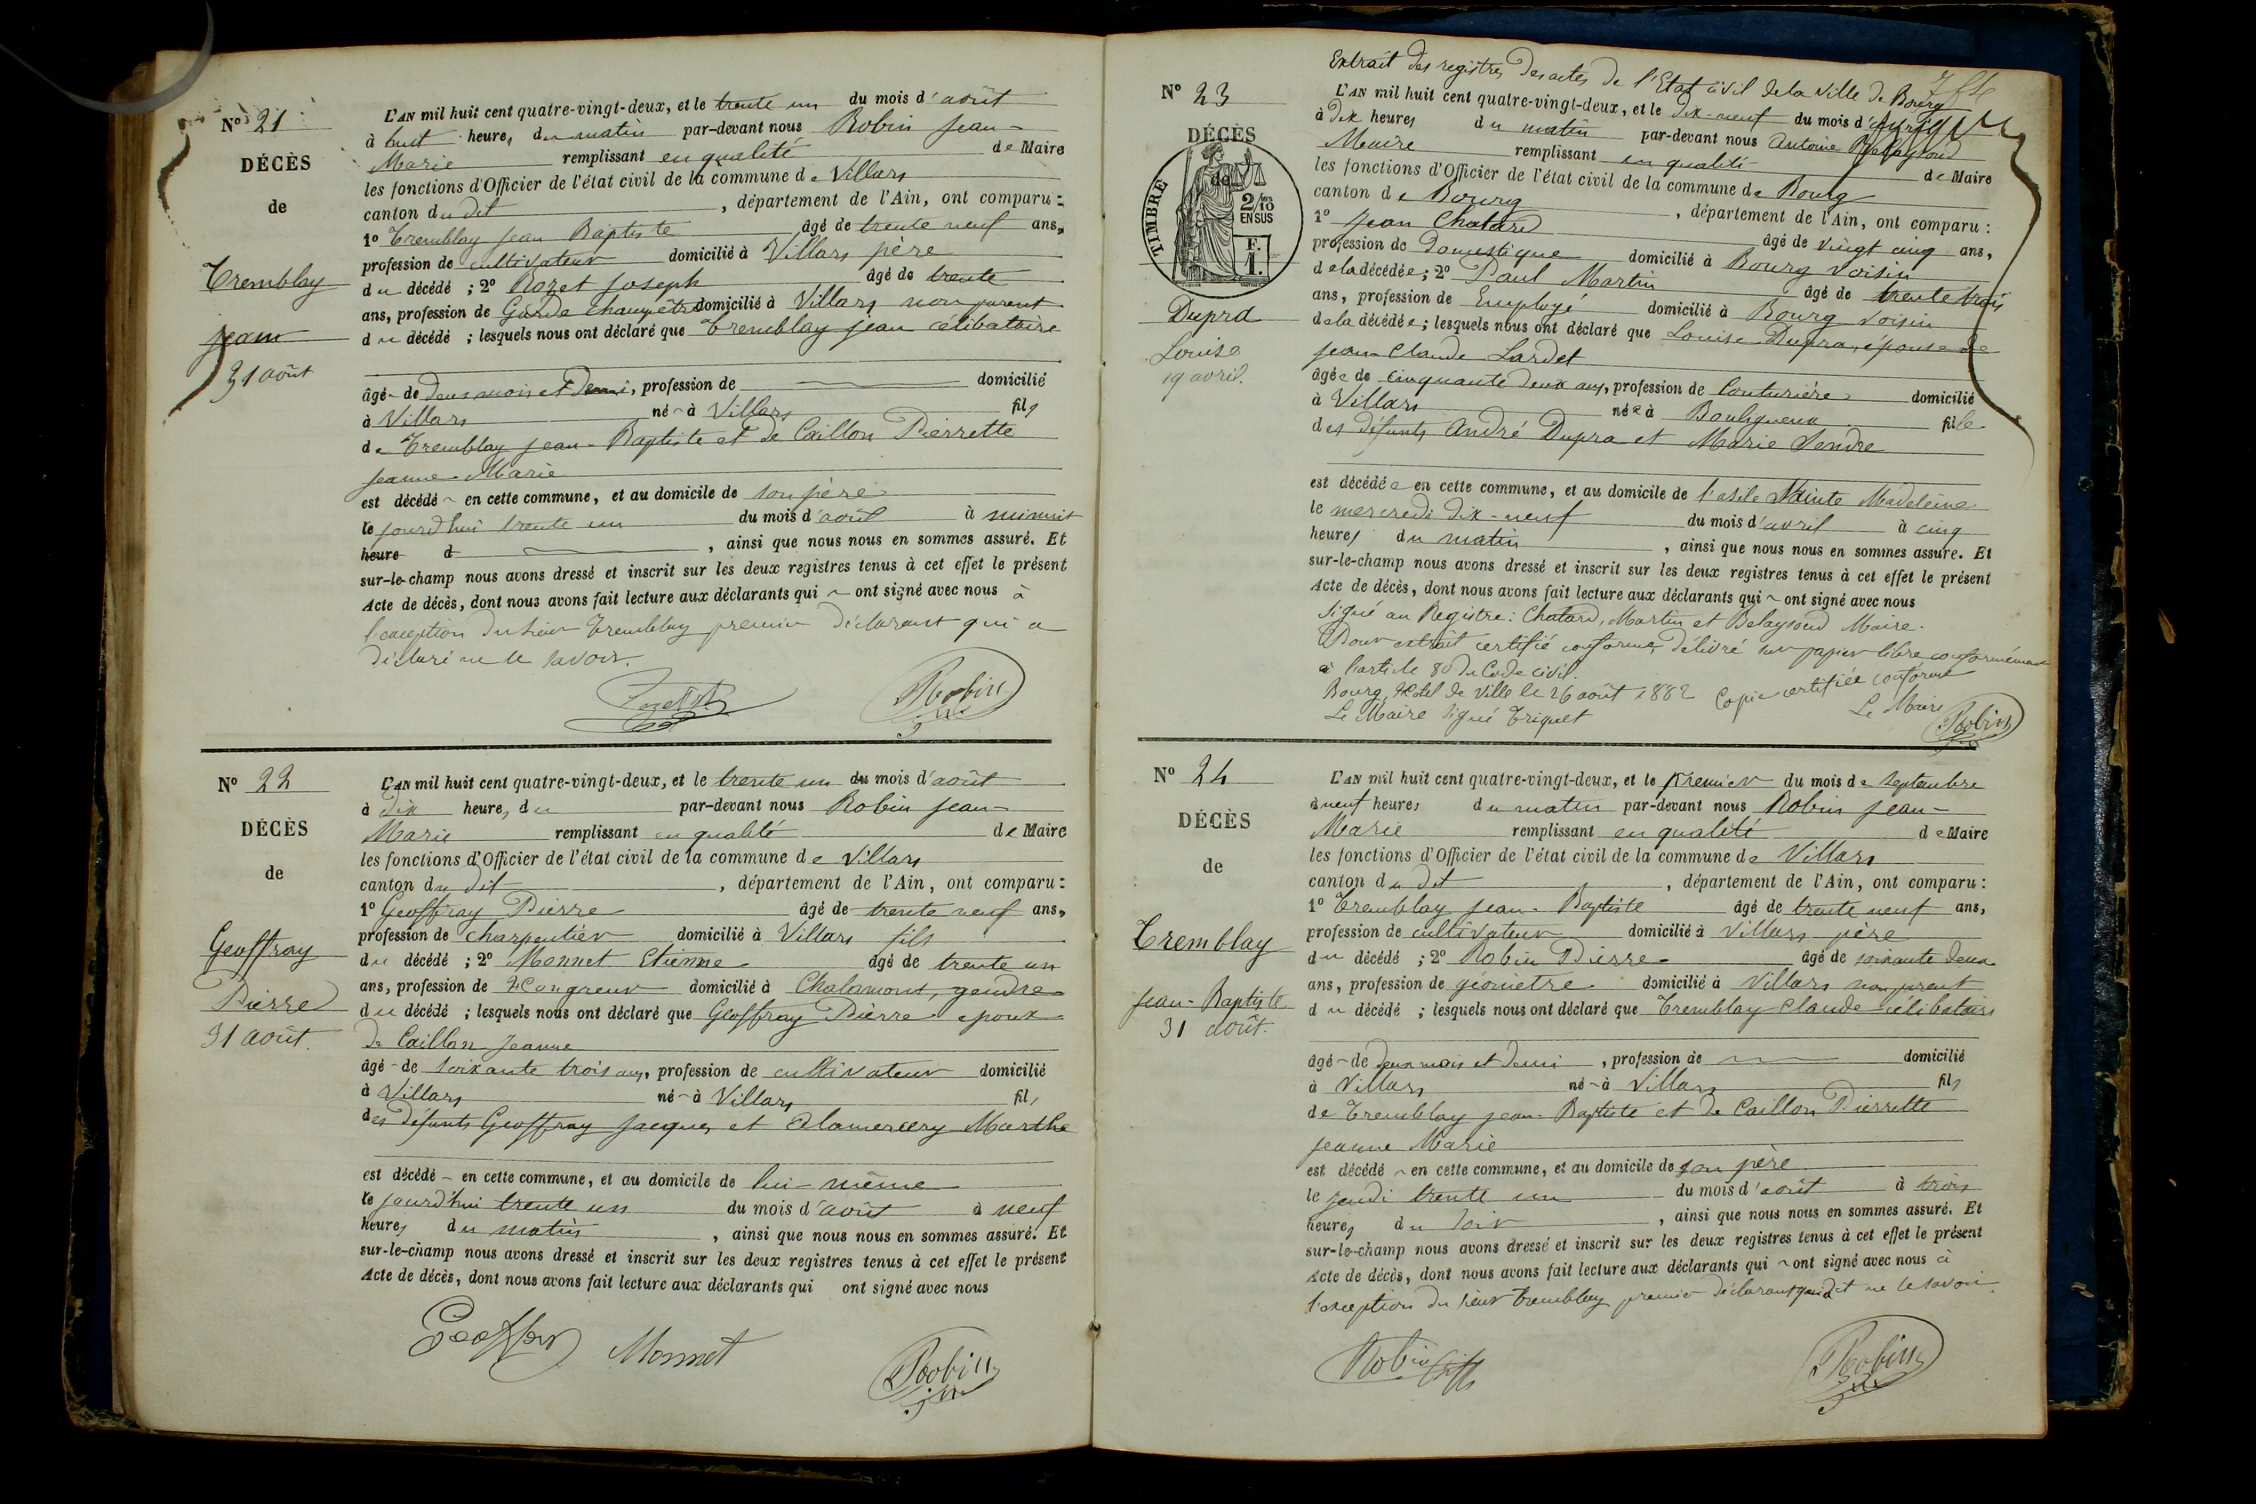 N° 21
DÉCÈS
de
Tremblay
Jean
31 août
L'AN mil huit cent quatre-vingt-deux, et le trente un du mois d'août
à huit heures du matin par-devant nous Robin Jean-
Marie remplissant en qualité de Maire
les fonctions d'Officier de l'état civil de la commune de Villars
canton du dit, département de l'Ain, ont comparu :
1° Tremblay Jean Baptiste âgé de trente neuf ans,
profession de cultivateur domicilié à Villars père
du décédé ; 2° Rozet Joseph âgé de trente
ans, profession de Garde Champêtre domicilié à Villars non parent
du décédé ; lesquels nous ont déclaré que Tremblay Jean célibataire
âgé de deux mois et Demi, profession de domicilié
à Villars né à Villars fils
de Tremblay Jean-Baptiste et de Caillon Pierrette
Jeanne Marie
est décédé en cette commune, et au domicile de son père
le jourd'hui trente un du mois d'août à minuit
heure d , ainsi que nous nous en sommes assuré. Et
sur-le-champ nous avons dressé et inscrit sur les deux registres tenus à cet effet le présent
Acte de décès, dont nous avons fait lecture aux déclarants qui ont signé avec nous à
l'exception du sieur Tremblay premier déclarant qui a
déclaré ne le savoir.
Rozet Robin
N° 22
DÉCÈS
de
Geoffray
Pierre
31 août.
L'AN mil huit cent quatre-vingt-deux, et le trente un du mois d'août
à dix heures du par-devant nous Robin Jean-
Marie remplissant en qualité de Maire
les fonctions d'Officier de l'état civil de la commune de Villars
canton du dit, département de l'Ain, ont comparu :
1° Geoffray Pierre âgé de trente neuf ans,
profession de charpentier domicilié à Villars fils
du décédé ; 2° Monnet Etienne âgé de trente un
ans, profession de domicilié à Chalamont, gendre
du décédé ; lesquels nous ont déclaré que Geoffray Pierre époux
de Caillon Jeanne
âgé de soixante trois ans, profession de cultivateur domicilié
à Villars né à Villars fils
des défunts Geoffray Jacques et Alamercery Marthe
est décédé en cette commune, et au domicile de lui-même
le jourd'hui trente un du mois d'août à neuf
heures du matin, ainsi que nous nous en sommes assuré. Et
sur-le-champ nous avons dressé et inscrit sur les deux registres tenus à cet effet le présent
Acte de décès, dont nous avons fait lecture aux déclarants qui ont signé avec nous
Geoffray Monnet Robin
N° 23
DÉCÈS
de
TIMBRE
2/10 EN SUS
F. 1.
Dupra
Louise
19 avril.
Extrait des registres des actes de l'Etat civil de la ville de Bourg
L'AN mil huit cent quatre-vingt-deux, et le dix-neuf du mois d'avril
à dix heures du matin par-devant nous Antoine Belaysoud
Maire remplissant en qualité de Maire
les fonctions d'Officier de l'état civil de la commune de Bourg
canton de Bourg, département de l'Ain, ont comparu :
1° Jean Chatard âgé de vingt cinq ans,
profession de domestique domicilié à Bourg voisin
de la décédée ; 2° Paul Martin âgé de trente trois
ans, profession de Employé domicilié à Bourg voisin
de la décédée ; lesquels nous ont déclaré que Louise Dupra, épouse de
Jean-Claude Lardet
âgée de cinquante deux ans, profession de Couturière domicilié
à Villars née à Bouligneux fille
des défunts André Dupra et Marie Sendre
est décédée en cette commune, et au domicile de l'asile Sainte Madeleine
le mercredi dix-neuf du mois d'avril à cinq
heures du matin, ainsi que nous nous en sommes assuré. Et
sur-le-champ nous avons dressé et inscrit sur les deux registres tenus à cet effet le présent
Acte de décès, dont nous avons fait lecture aux déclarants qui ont signé avec nous
Signé au Registre : Chatard, Martin et Belaysoud Maire.
Pour extrait certifié conforme, délivré sur papier libre conformément
à l'article 80 du Code civil.
Bourg, Hôtel de Ville le 26 août 1882 Copie certifiée conforme
Le Maire signé Triquet Le Maire
Robin
N° 24
DÉCÈS
de
Tremblay
Jean-Baptiste
31 août.
L'AN mil huit cent quatre-vingt-deux, et le premier du mois de septembre
à neuf heures du matin par-devant nous Robin Jean-
Marie remplissant en qualité de Maire
les fonctions d'Officier de l'état civil de la commune de Villars
canton du dit, département de l'Ain, ont comparu :
1° Tremblay Jean-Baptiste âgé de trente neuf ans,
profession de cultivateur domicilié à Villars père
du décédé ; 2° Robin Pierre âgé de soixante deux
ans, profession de géomètre domicilié à Villars non parent
du décédé ; lesquels nous ont déclaré que Tremblay Claude célibataire
âgé de deux mois et demi, profession de domicilié
à Villars né à Villars fils
de Tremblay Jean-Baptiste et de Caillon Pierrette
Jeanne Marie
est décédé en cette commune, et au domicile de son père
le jeudi trente un du mois d'août à trois
heures du soir, ainsi que nous nous en sommes assuré. Et
sur-le-champ nous avons dressé et inscrit sur les deux registres tenus à cet effet le présent
Acte de décès, dont nous avons fait lecture aux déclarants qui ont signé avec nous à
l'exception du sieur Tremblay premier déclarant qui a dit ne le savoir.
Robin Robin